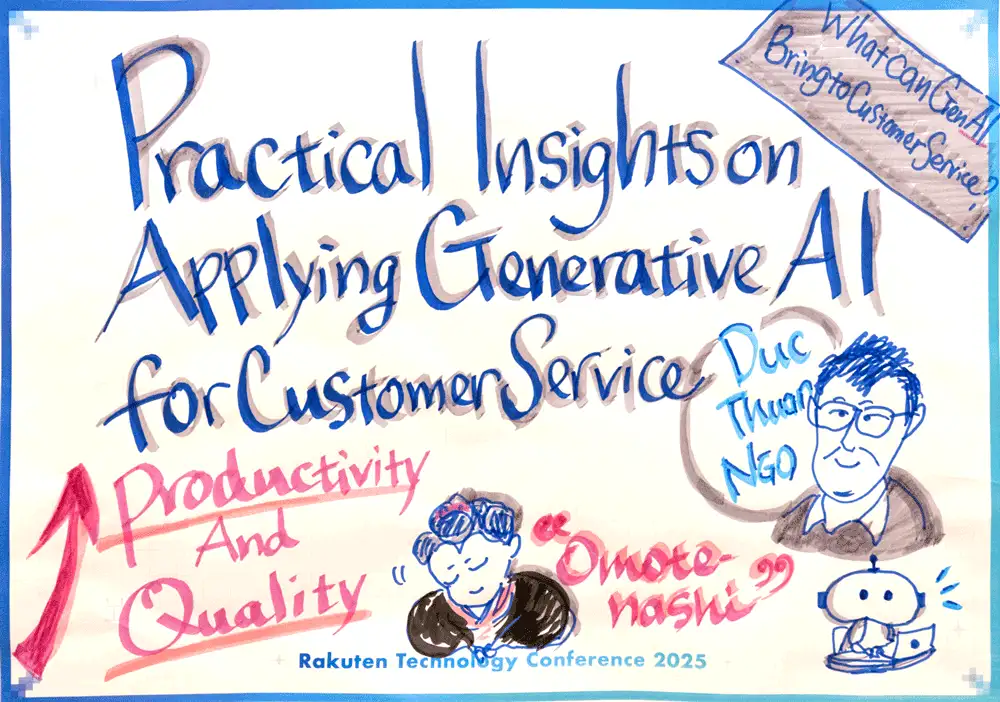 What can GenAI
Bring to Customer Service?
Practical Insights on
Applying Generative AI
for Customer Service
Duc
Thuan
NGO
Productivity
And
Quality
"Omote-
nashi"
Rakuten Technology Conference 2025